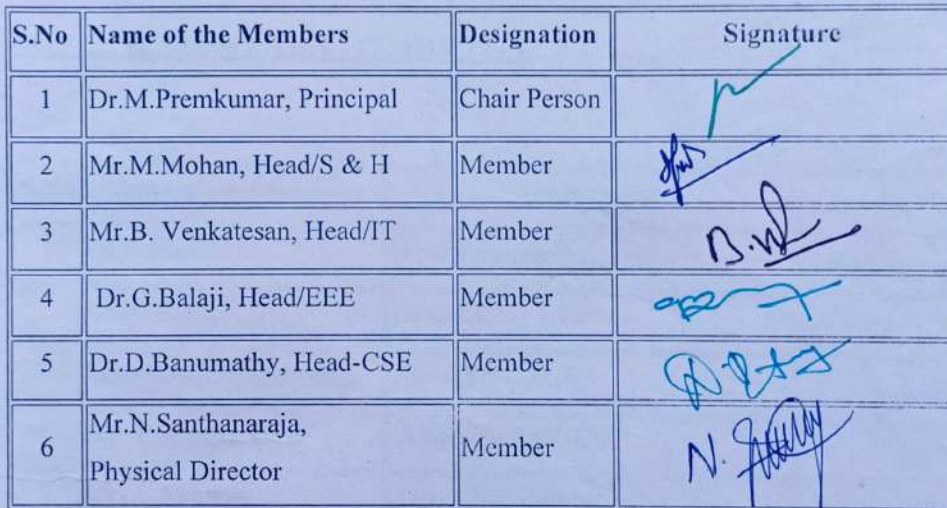 S.No Name of the Members Designation Signature
1 Dr.M.Premkumar, Principal Chair Person
2 Mr.M.Mohan, Head/S & H Member
3 Mr.B. Venkatesan, Head/IT Member
4 Dr.G.Balaji, Head/EEE Member
5 Dr.D.Banumathy, Head-CSE Member
6 Mr.N.Santhanaraja,
Physical Director Member N.